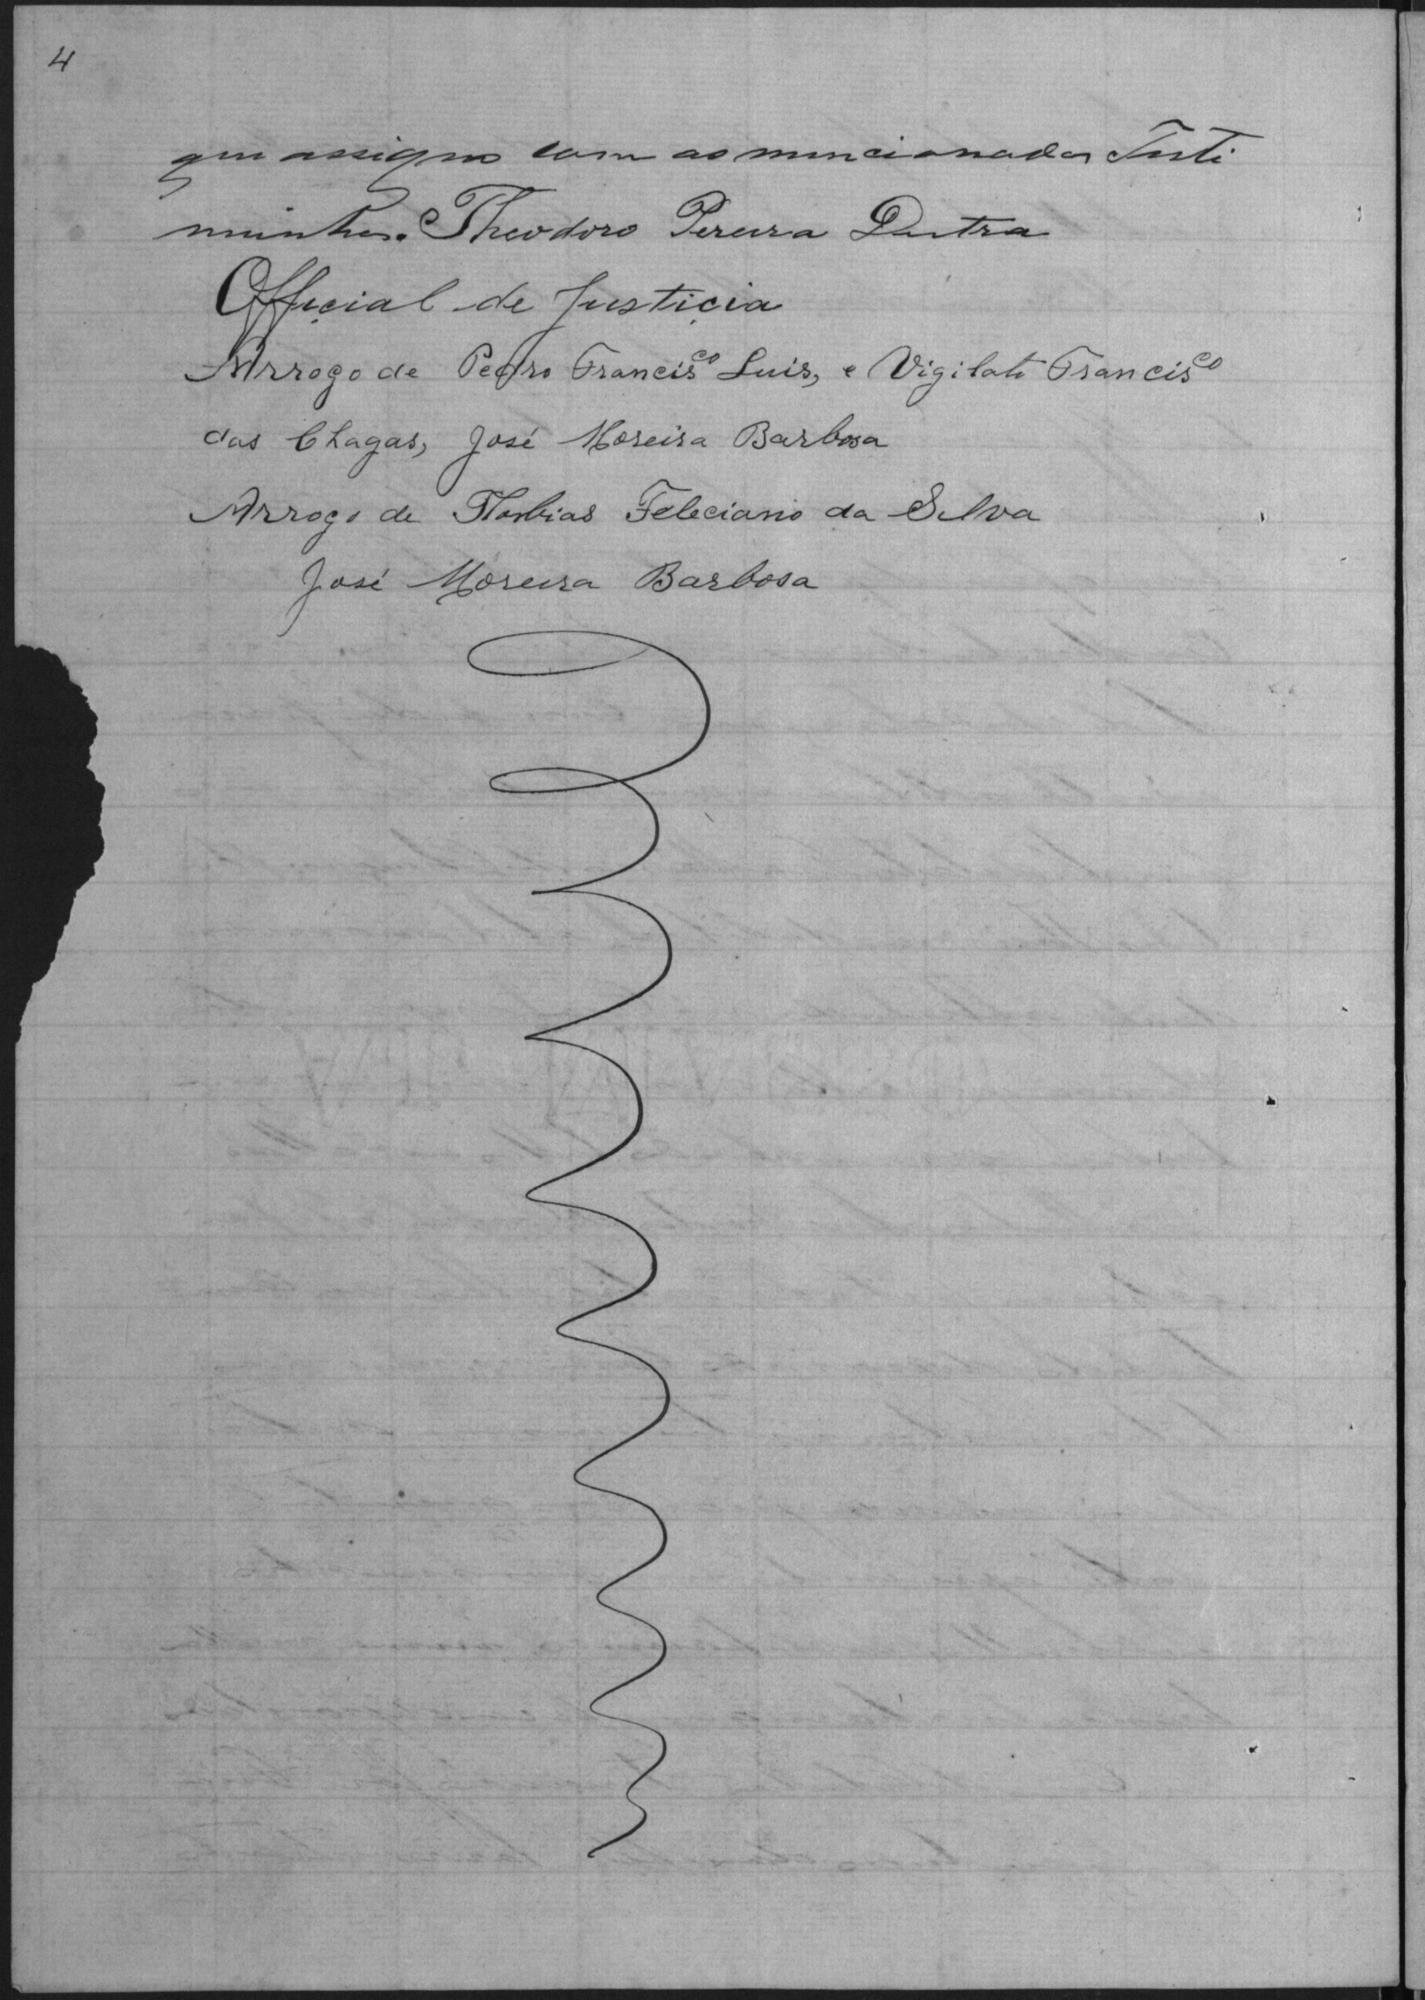 4
que assigno com as mencionadas Testi
munhas. Theodoro Pereira Dutra
Official de Justicia
Arrogo de Pedro Francisco Luis, e Vigilato Francisco
das Chagas, José Moreira Barbosa
Arrogo de Thobias Feleciano da Selva
José Moreira Barbosa